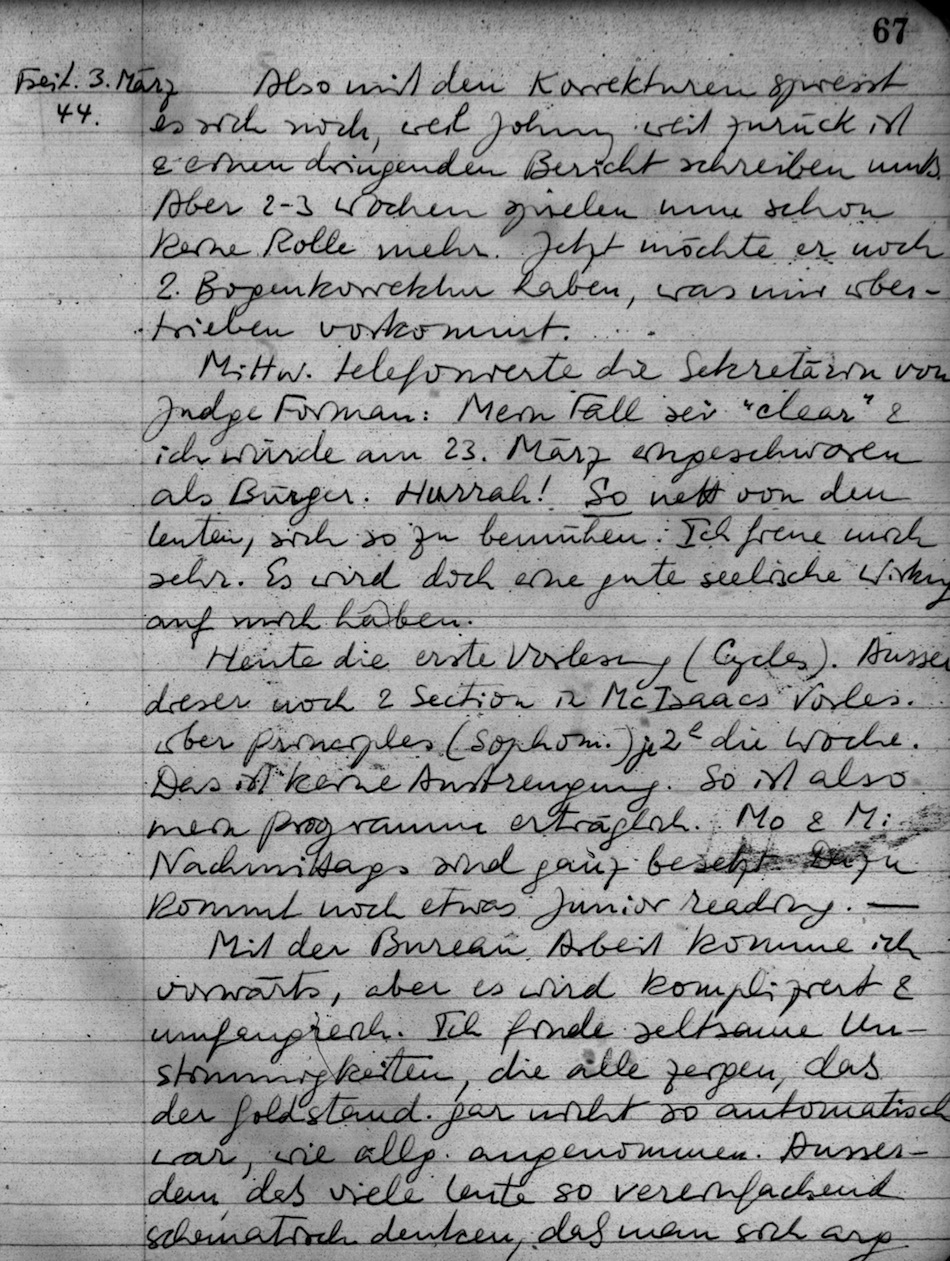 67
Freit. 3. März
44.
Also mit den Korrekturen spiesst
es sich noch, weil Johnny weit zurück ist
& einen dringenden Bericht schreiben muß.
Aber 2-3 Wochen spielen nun schon
keine Rolle mehr. Jetzt möchte er noch
2. Bogenkorrektur haben, was mir über-
trieben vorkommt.
Mittw. telefonierte die Sekretärin von
Judge Forman: Mein Fall sei "clear" &
ich würde am 23. März eingeschworen
als Bürger. Hurrah! So nett von den
Leuten, sich so zu bemühen. Ich freue mich
sehr. Es wird doch eine gute seelische Wirkung
auf mich haben.
Heute die erste Vorlesung (Cycles). Ausser
dieser noch 2 Section in McIsaacs Vorles.
über principles (Sophom.) je 2 die Woche.
Das ist keine Anstrengung. So ist also
mein Programm erträglich. Mo & Mi
Nachmittags sind ganz besetzt. Dazu
kommt noch etwas Junior reading. —
Mit der Bureau Arbeit komme ich
vorwärts, aber es wird kompliziert &
umfangreich. Ich finde seltsame Un-
stimmigkeiten, die alle zeigen, das
der Goldstand. gar nicht so automatisch
war, wie allg. angenommen. Ausser-
dem, daß viele Leute so vereinfachend
schematisch denken, daß man sich arg